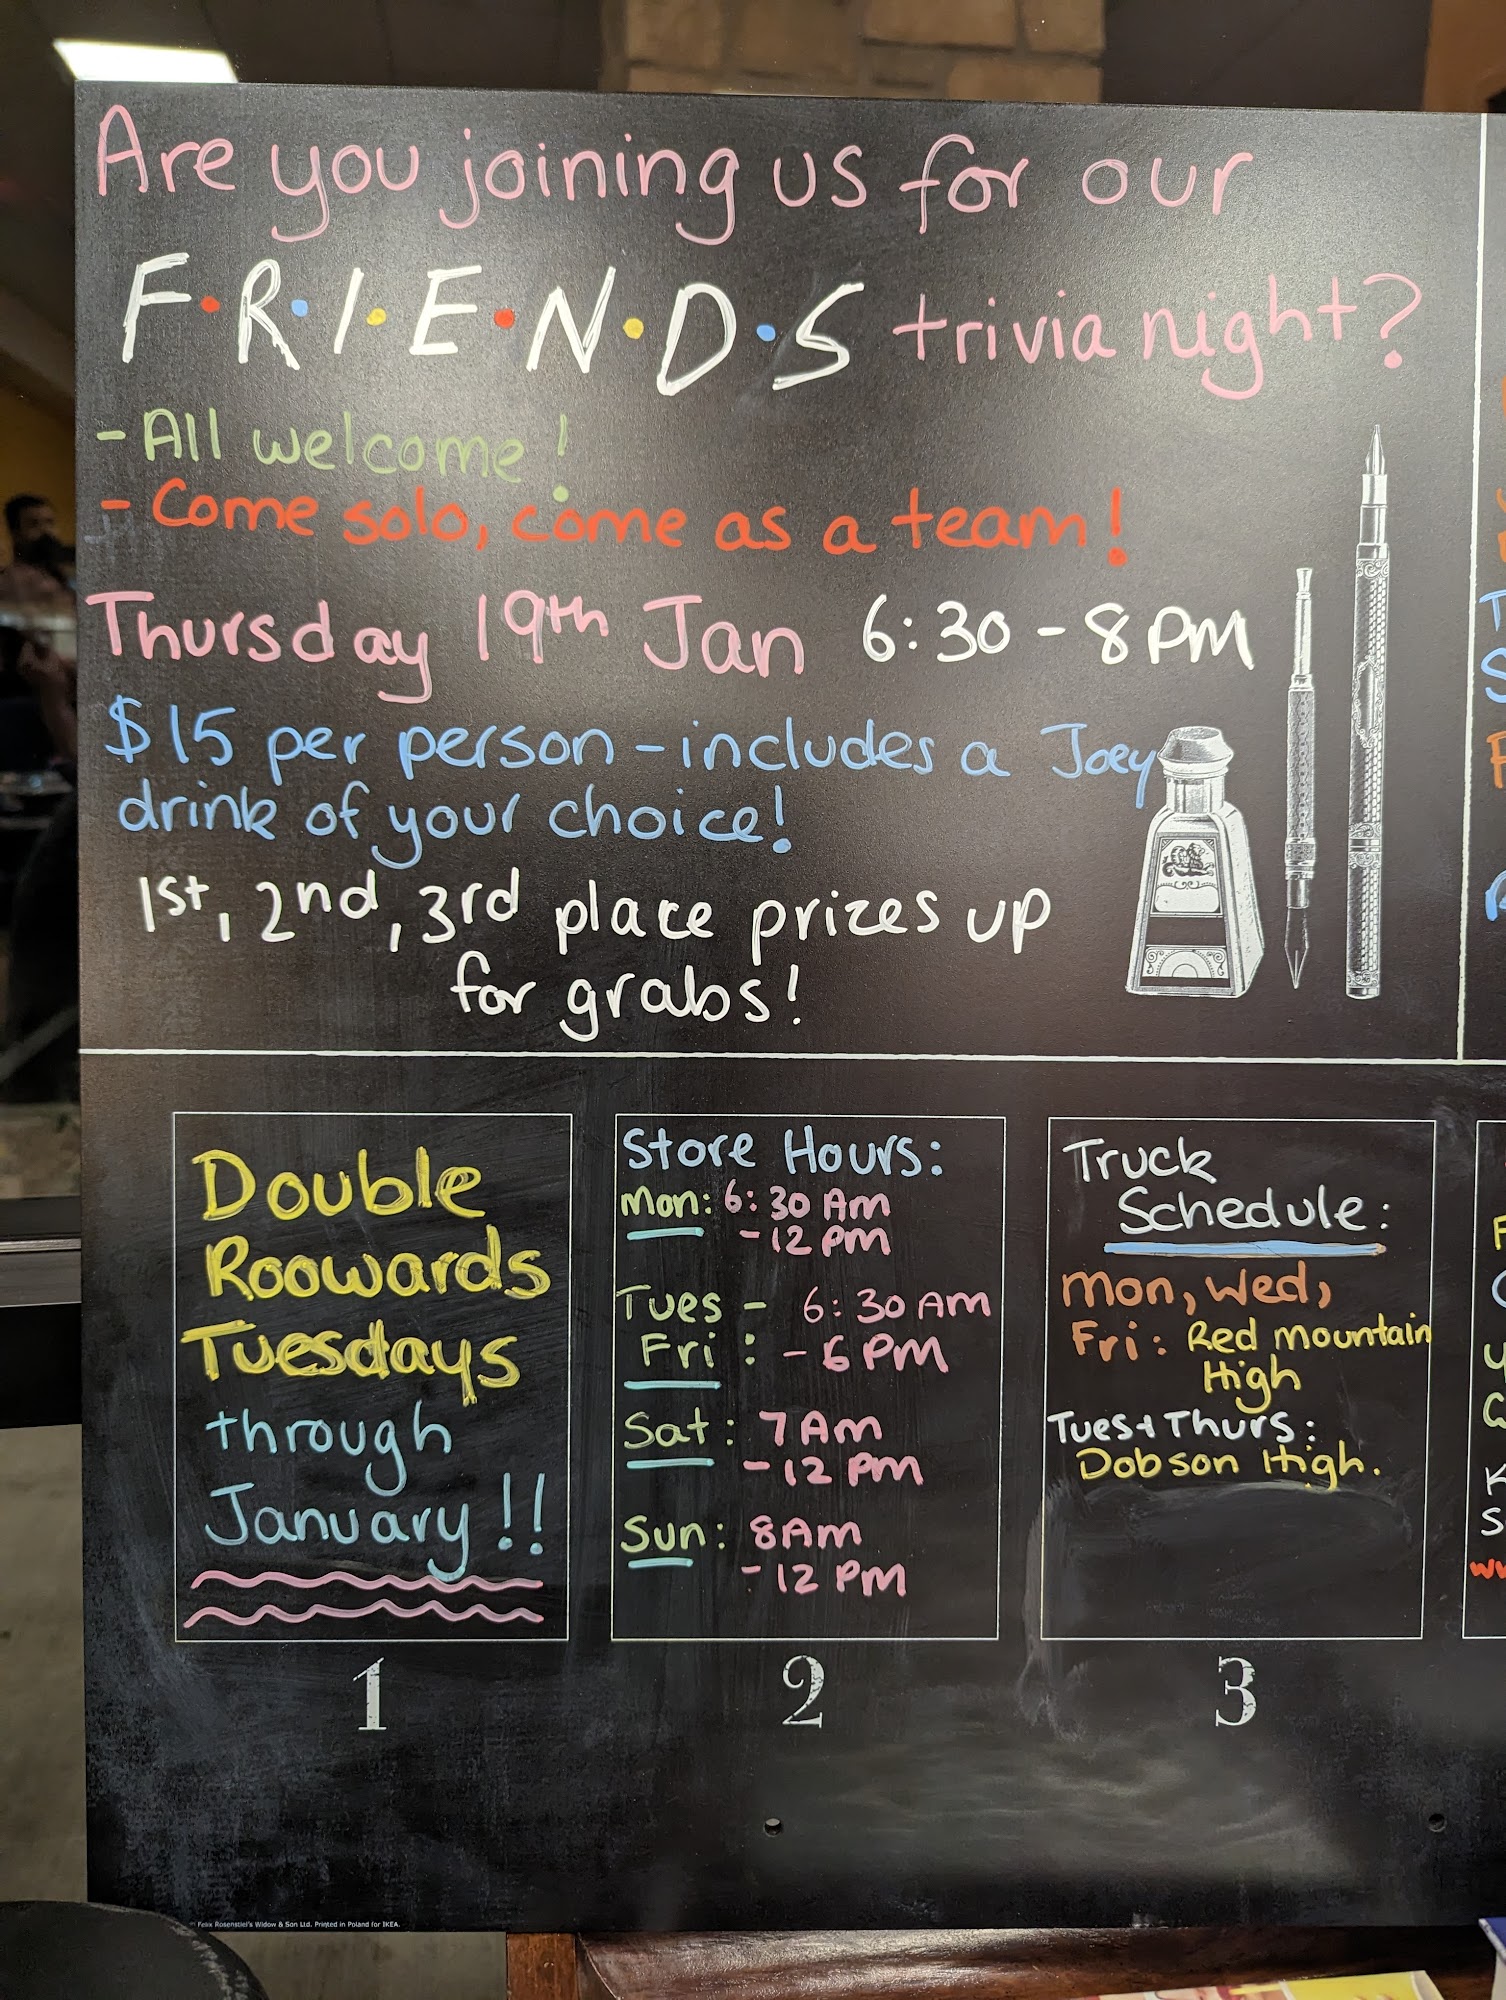 Are you joining us for our
F·R·I·E·N·D·S trivia night?
- All welcome!
- Come solo, come as a team!
Thursday 19th Jan 6:30 - 8PM
$15 per person - includes a Joey
drink of your choice!
1st, 2nd, 3rd place prizes up
for grabs!
Double
Roowards
Tuesdays
through
January!!
1
Store Hours:
Mon: 6:30 Am
- 12 pm
Tues - 6:30 AM
Fri: - 6 PM
Sat: 7 Am
- 12 pm
Sun: 8 Am
- 12 PM
2
Truck
Schedule:
Mon, Wed,
Fri: Red Mountain
High
Tues + Thurs:
Dobson High.
3
© Felix Rosenstiel's Widow & Son Ltd. Printed in Poland for IKEA.